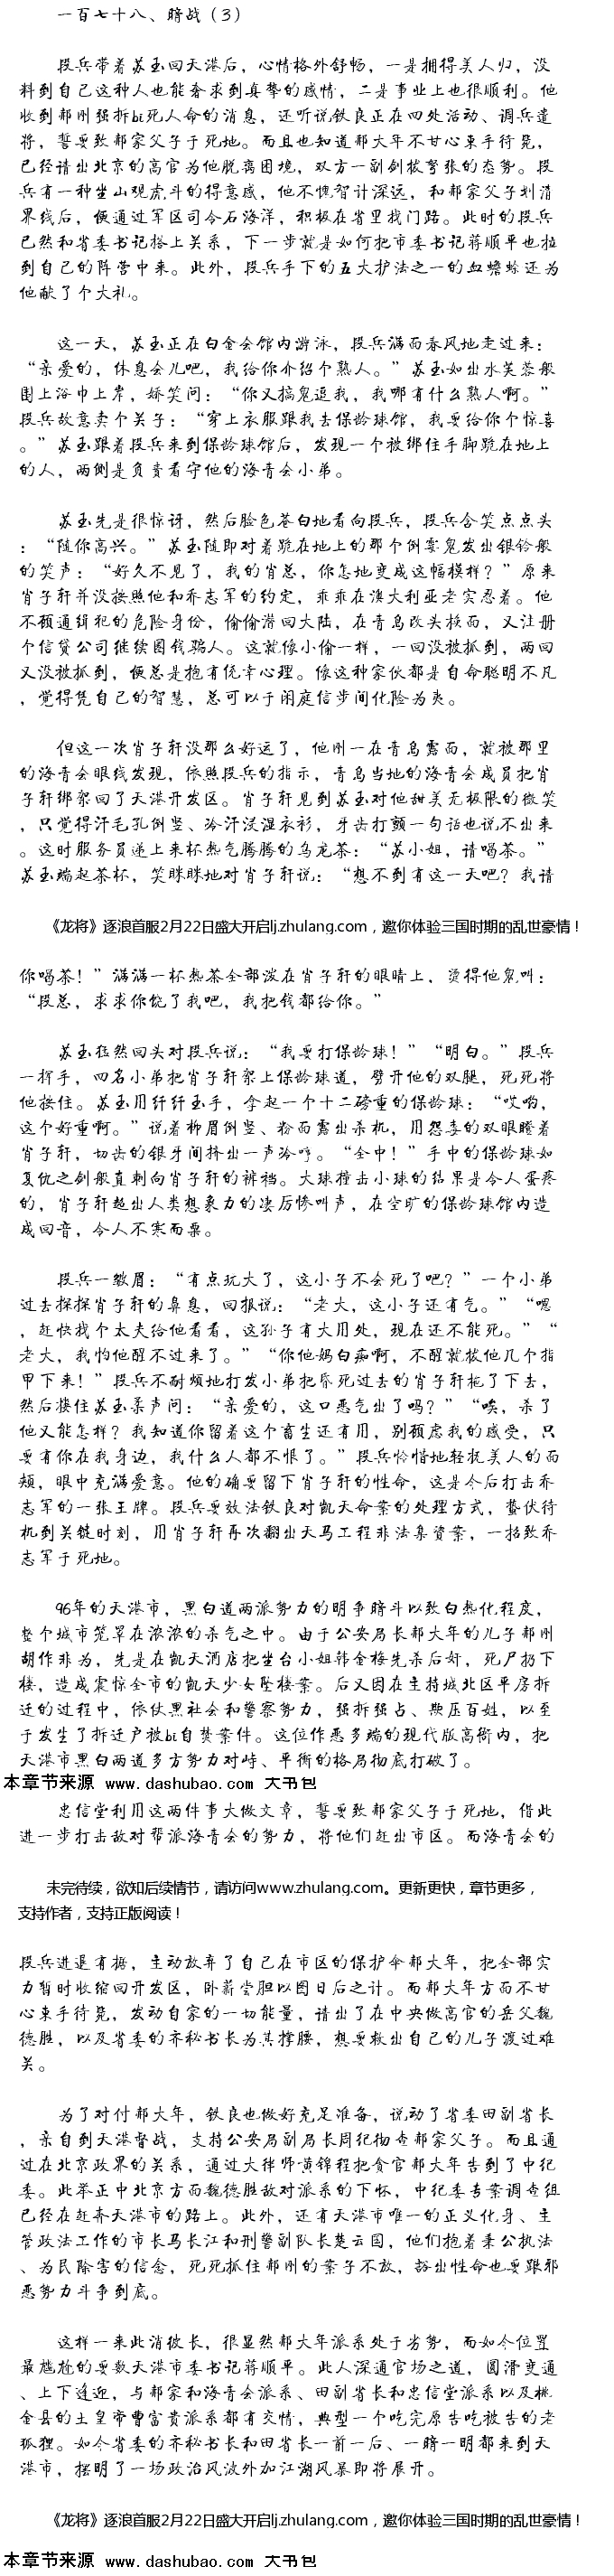 一百七十八、暗战（3）
段兵带着苏玉回天港后，心情格外舒畅，一是拥得美人归，没
料到自己这种人也能奢求到真挚的感情，二是事业上也很顺利。他
收到郝刚强拆bī死人命的消息，还听说铁良正在四处活动、调兵遣
将，誓要致郝家父子于死地。而且也知道郝大年不甘心束手待毙，
已经请出北京的高官为他脱离困境，双方一副剑拔弩张的态势。段
兵有一种坐山观虎斗的得意感，他不愧智计深远，和郝家父子划清
界线后，便通过军区司令石海洋，积极在省里找门路。此时的段兵
已然和省委书记搭上关系，下一步就是如何把市委书记蒋顺平也拉
到自己的阵营中来。此外，段兵手下的五大护法之一的血蟾蜍还为
他献了个大礼。
这一天，苏玉正在白金会馆内游泳，段兵满面春风地走过来：
“亲爱的，休息会儿吧，我给你介绍个熟人。”苏玉如出水芙蓉般
围上浴巾上岸，娇笑问：“你又搞鬼逗我，我哪有什么熟人啊。”
段兵故意卖个关子：“穿上衣服跟我去保龄球馆，我要给你个惊喜
。”苏玉跟着段兵来到保龄球馆后，发现一个被绑住手脚跪在地上
的人，两侧是负责看守他的海青会小弟。
苏玉先是很惊讶，然后脸色苍白地看向段兵，段兵含笑点点头
：“随你高兴。”苏玉随即对着跪在地上的那个倒霉鬼发出银铃般
的笑声：“好久不见了，我的肖总，你怎地变成这幅模样？”原来
肖子轩并没按照他和乔志军的约定，乖乖在澳大利亚老实忍着。他
不顾通缉犯的危险身份，偷偷潜回大陆，在青岛改头换面，又注册
个信贷公司继续圈钱骗人。这就像小偷一样，一回没被抓到，两回
又没被抓到，便总是抱有侥幸心理。像这种家伙都是自命聪明不凡
，觉得凭自己的智慧，总可以于闲庭信步间化险为夷。
但这一次肖子轩没那么好运了，他刚一在青岛露面，就被那里
的海青会眼线发现，依照段兵的指示，青岛当地的海青会成员把肖
子轩绑架回了天港开发区。肖子轩见到苏玉对他甜美无极限的微笑
，只觉得汗毛孔倒竖、冷汗浸湿衣衫，牙齿打颤一句话也说不出来
。这时服务员递上来杯热气腾腾的乌龙茶：“苏小姐，请喝茶。”
苏玉端起茶杯，笑眯眯地对肖子轩说：“想不到有这一天吧？我请
《龙将》逐浪首服2月22日盛大开启lj.zhulang.com，邀你体验三国时期的乱世豪情！
你喝茶！”满满一杯热茶全部泼在肖子轩的眼睛上，烫得他鬼叫：
“段总，求求你饶了我吧，我把钱都给你。”
苏玉猛然回头对段兵说：“我要打保龄球！”“明白。”段兵
一挥手，四名小弟把肖子轩架上保龄球道，劈开他的双腿，死死将
他按住。苏玉用纤纤玉手，拿起一个十二磅重的保龄球：“哎哟，
这个好重啊。”说着柳眉倒竖、粉面露出杀机，用怨毒的双眼瞪着
肖子轩，切齿的银牙间挤出一声冷哼。“全中！”手中的保龄球如
复仇之剑般直刺向肖子轩的裤裆。大球撞击小球的结果是令人蛋疼
的，肖子轩超出人类想象力的凄厉惨叫声，在空旷的保龄球馆内造
成回音，令人不寒而栗。
段兵一皱眉：“有点玩大了，这小子不会死了吧？”一个小弟
过去探探肖子轩的鼻息，回报说：“老大，这小子还有气。”“嗯
，赶快找个大夫给他看看，这孙子有大用处，现在还不能死。”“
老大，我怕他醒不过来了。”“你他妈白痴啊，不醒就拔他几个指
甲下来！”段兵不耐烦地打发小弟把昏死过去的肖子轩拖了下去，
然后搂住苏玉柔声问：“亲爱的，这口恶气出了吗？”“唉，杀了
他又能怎样？我知道你留着这个畜生还有用，别顾虑我的感受，只
要有你在我身边，我什么人都不恨了。”段兵怜惜地轻抚美人的面
颊，眼中充满爱意。他的确要留下肖子轩的性命，这是今后打击乔
志军的一张王牌。段兵要效法铁良对凯天命案的处理方式，蛰伏待
机到关键时刻，用肖子轩再次翻出天马工程非法集资案，一招致乔
志军于死地。
96年的天港市，黑白道两派势力的明争暗斗以致白热化程度，
整个城市笼罩在浓浓的杀气之中。由于公安局长郝大年的儿子郝刚
胡作非为，先是在凯天酒店把坐台小姐韩金梅先杀后奸，死尸扔下
楼，造成震惊全市的凯天少女坠楼案。后又因在主持城北区平房拆
迁的过程中，依仗黑社会和警察势力，强拆强占、欺压百姓，以至
于发生了拆迁户被bī自焚案件。这位作恶多端的现代版高衙内，把
天港市黑白两道多方势力对峙、平衡的格局彻底打破了。
本章节来源 www.dashubao.com 大书包
忠信堂利用这两件事大做文章，誓要致郝家父子于死地，借此
进一步打击敌对帮派海青会的势力，将他们赶出市区。而海青会的
未完待续，欲知后续情节，请访问www.zhulang.com。更新更快，章节更多，
支持作者，支持正版阅读！
段兵进退有据，主动放弃了自己在市区的保护伞郝大年，把全部实
力暂时收缩回开发区，卧薪尝胆以图日后之计。而郝大年方面不甘
心束手待毙，发动自家的一切能量，请出了在中央做高官的岳父魏
德胜，以及省委的齐秘书长为其撑腰，想要救出自己的儿子渡过难
关。
为了对付郝大年，铁良也做好充足准备，说动了省委田副省长
，亲自到天港督战，支持公安局副局长周纪彻查郝家父子。而且通
过在北京政界的关系，通过大律师黄锦程把贪官郝大年告到了中纪
委。此举正中北京方面魏德胜敌对派系的下怀，中纪委专案调查组
已经在赶奔天港市的路上。此外，还有天港市唯一的正义化身、主
管政法工作的市长马长江和刑警副队长楚云国，他们抱着秉公执法
、为民除害的信念，死死抓住郝刚的案子不放，豁出性命也要跟邪
恶势力斗争到底。
这样一来此消彼长，很显然郝大年派系处于劣势，而如今位置
最尴尬的要数天港市委书记蒋顺平。此人深通官场之道，圆滑变通
、上下逢迎，与郝家和海青会派系、田副省长和忠信堂派系以及桃
金县的土皇帝曹富贵派系都有交情，典型一个吃完原告吃被告的老
狐狸。如今省委的齐秘书长和田省长一前一后、一暗一明都来到天
港市，摆明了一场政治风波外加江湖风暴即将展开。
《龙将》逐浪首服2月22日盛大开启lj.zhulang.com，邀你体验三国时期的乱世豪情！
本章节来源 www.dashubao.com 大书包